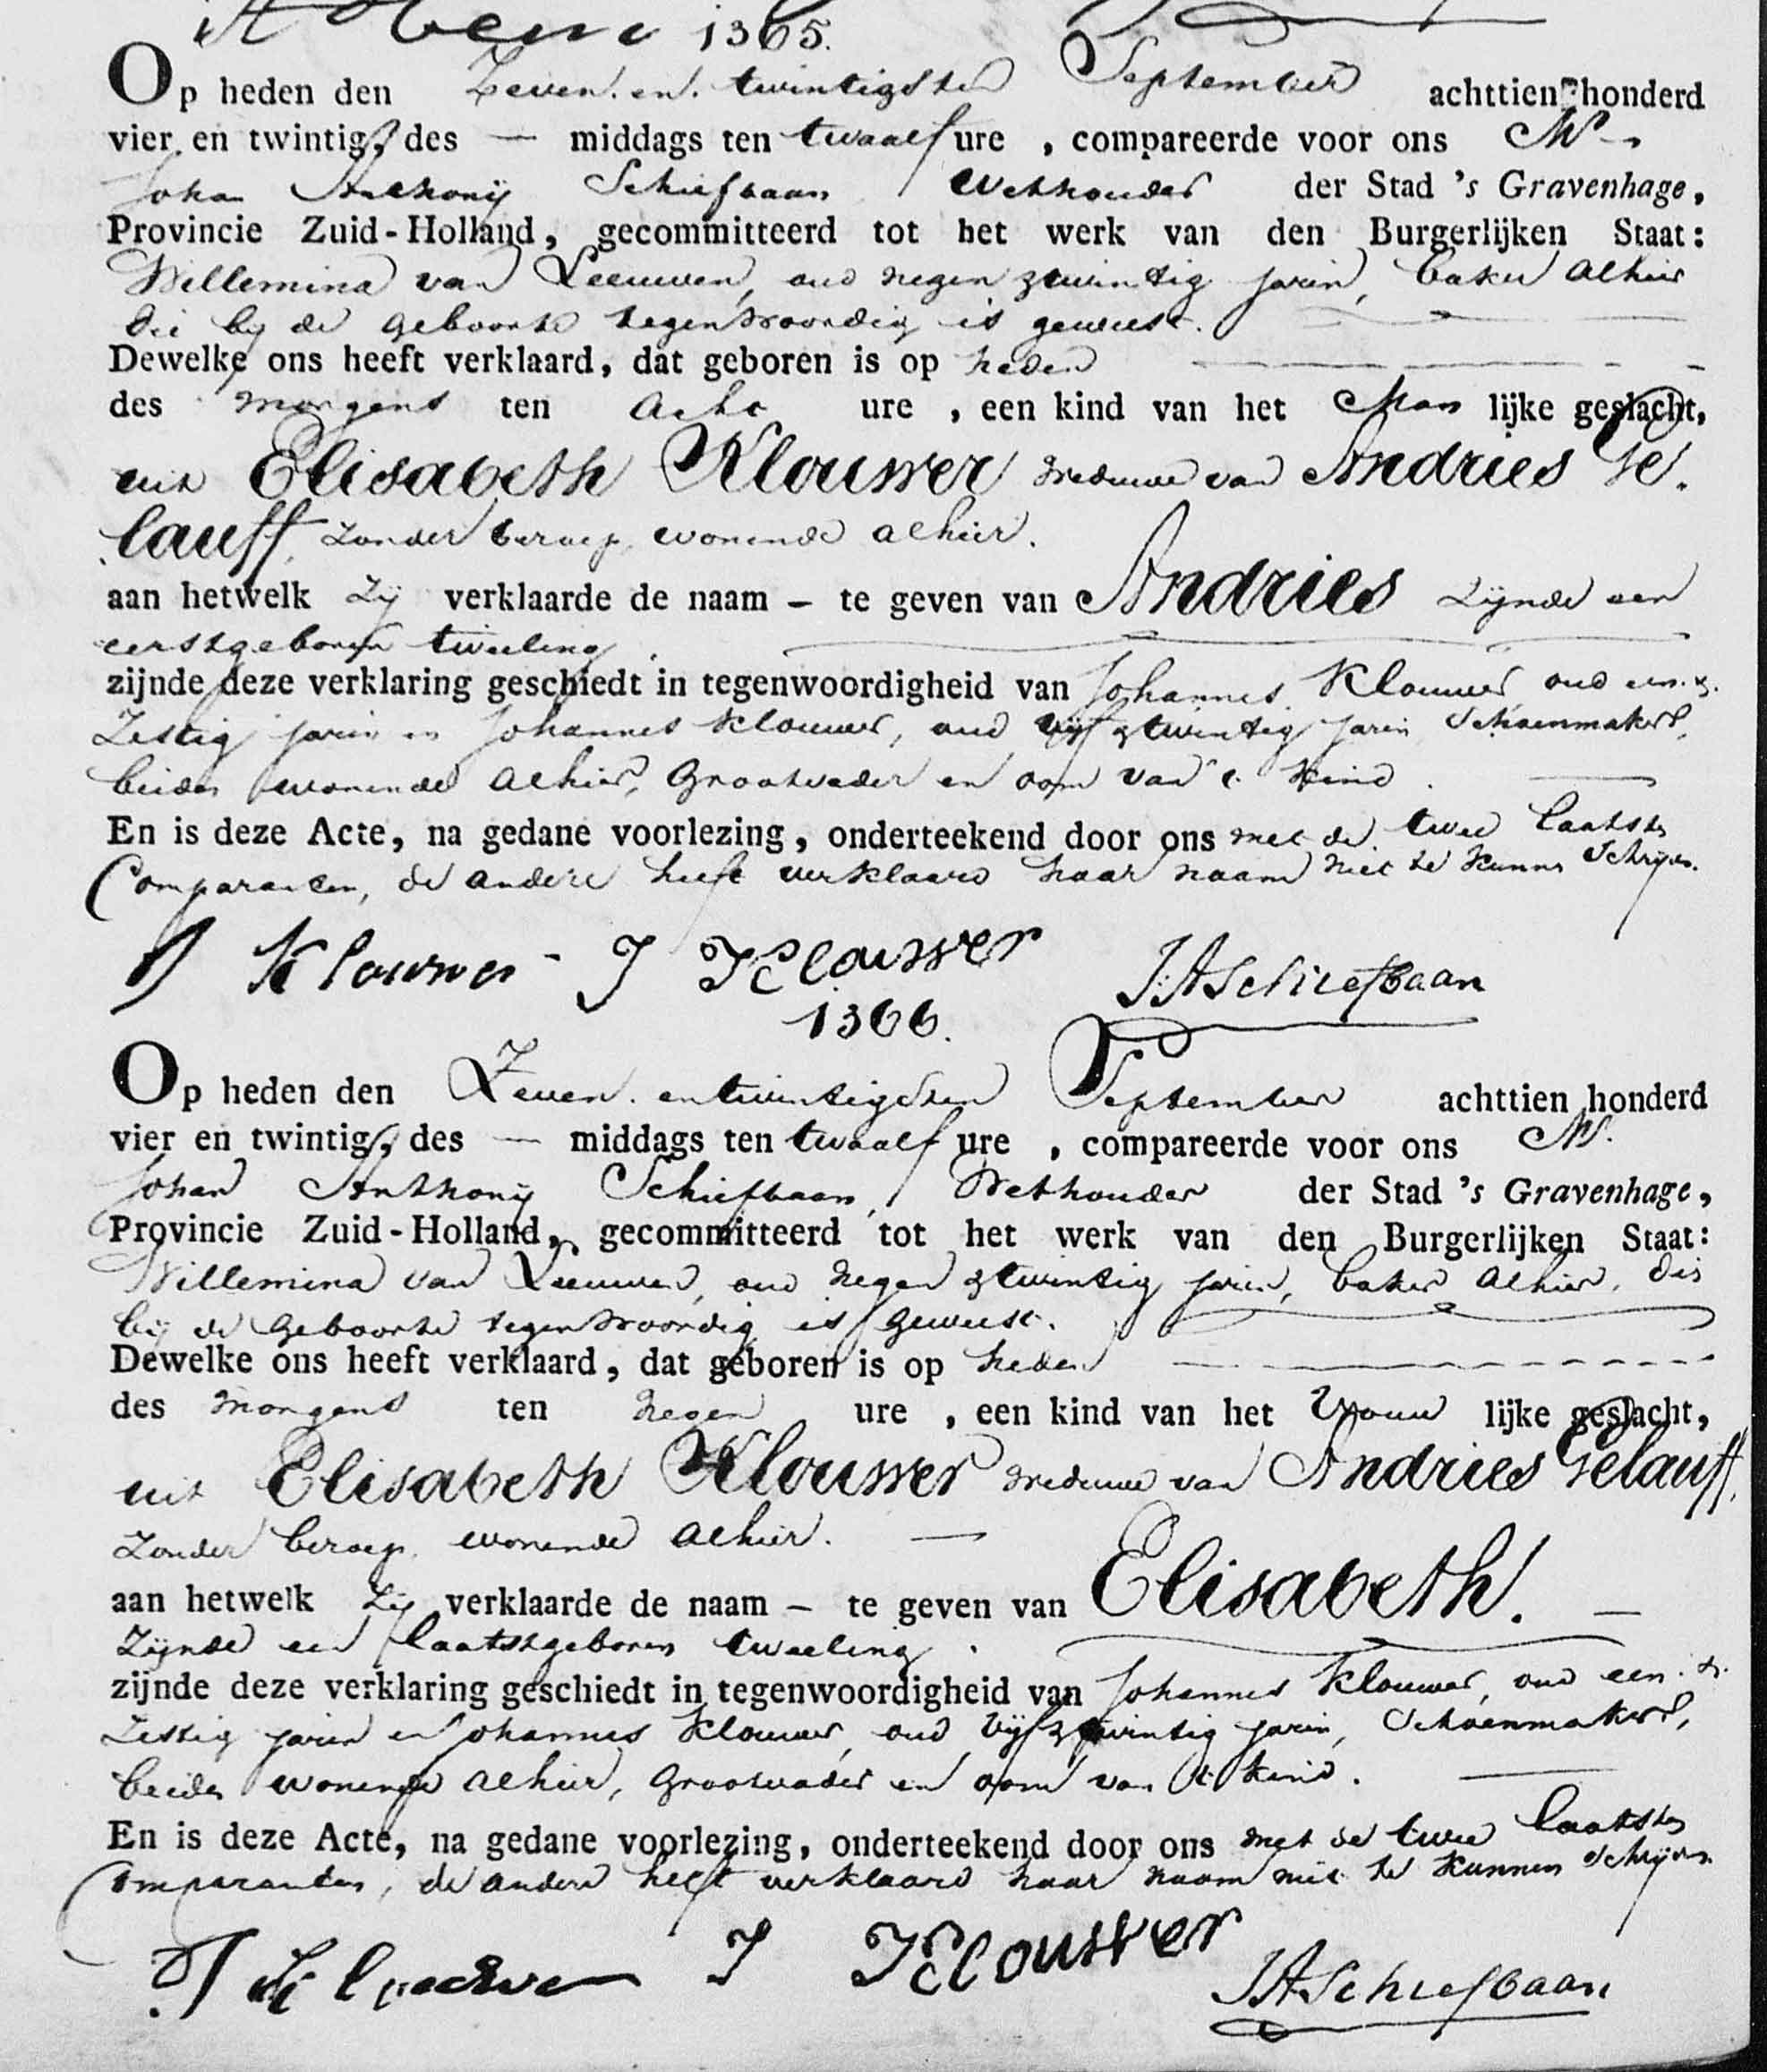 1365.
Op heden den Zeven en twintigsten September achttien honderd
vier en twintig, des — middags ten twaalf ure , compareerde voor ons Mr
Johan Anthonij Schiefbaan Wethouder der Stad 's Gravenhage,
Provincie Zuid-Holland, gecommitteerd tot het werk van den Burgerlijken Staat:
Willemina van Leeuwen, oud negen & twintig jaren, baker alhier
die bij de geboorte tegenwoordig is geweest.
Dewelke ons heeft verklaard, dat geboren is op heden
des morgens ten acht ure , een kind van het Man lijke geslacht,
uit Elisabeth Klouwer weduwe van Andries Ge-
lauff, zonder beroep, wonende alhier.
aan hetwelk zij verklaarde de naam – te geven van Andries zijnde een
eerstgeboren tweeling.
zijnde deze verklaring geschiedt in tegenwoordigheid van Johannes Klouwer, oud een &
Zestig jaren en Johannes Klouwer, oud vijf & twintig jaren Schoenmakers,
beiden wonende alhier, Grootvader en oom van 't kind.
En is deze Acte, na gedane voorlezing, onderteekend door ons met de twee laatste
Comparanten, de andere heeft verklaard haar naam niet te kunnen schrijven.
J Klouwer J Klouwer JA Schiefbaan
1366.
Op heden den Zeven en twintigsten September achttien honderd
vier en twintig, des — middags ten twaalf ure , compareerde voor ons Mr.
Johan Anthonij Schiefbaan, Wethouder der Stad 's Gravenhage,
Provincie Zuid-Holland, gecommitteerd tot het werk van den Burgerlijken Staat:
Willemina van Leeuwen, oud negen & twintig jaren, baker alhier, die
bij de geboorte tegenwoordig is geweest.
Dewelke ons heeft verklaard, dat geboren is op heden
des morgens ten negen ure , een kind van het Vrouw lijke geslacht,
uit Elisabeth Klouwer weduwe van Andries Gelauff,
zonder beroep, wonende alhier.
aan hetwelk zij verklaarde de naam – te geven van Elisabeth.
zijnde een laatstgeboren tweeling.
zijnde deze verklaring geschiedt in tegenwoordigheid van Johannes Klouwer, oud een &
Zestig jaren en Johannes Klouwer, oud vijf & twintig jaren, Schoenmakers,
beiden wonende alhier, Grootvader en oom van 't kind.
En is deze Acte, na gedane voorlezing, onderteekend door ons met de twee laatste
Comparanten, de andere heeft verklaard haar naam niet te kunnen schrijven.
J Klouwer J Klouwer JA Schiefbaan